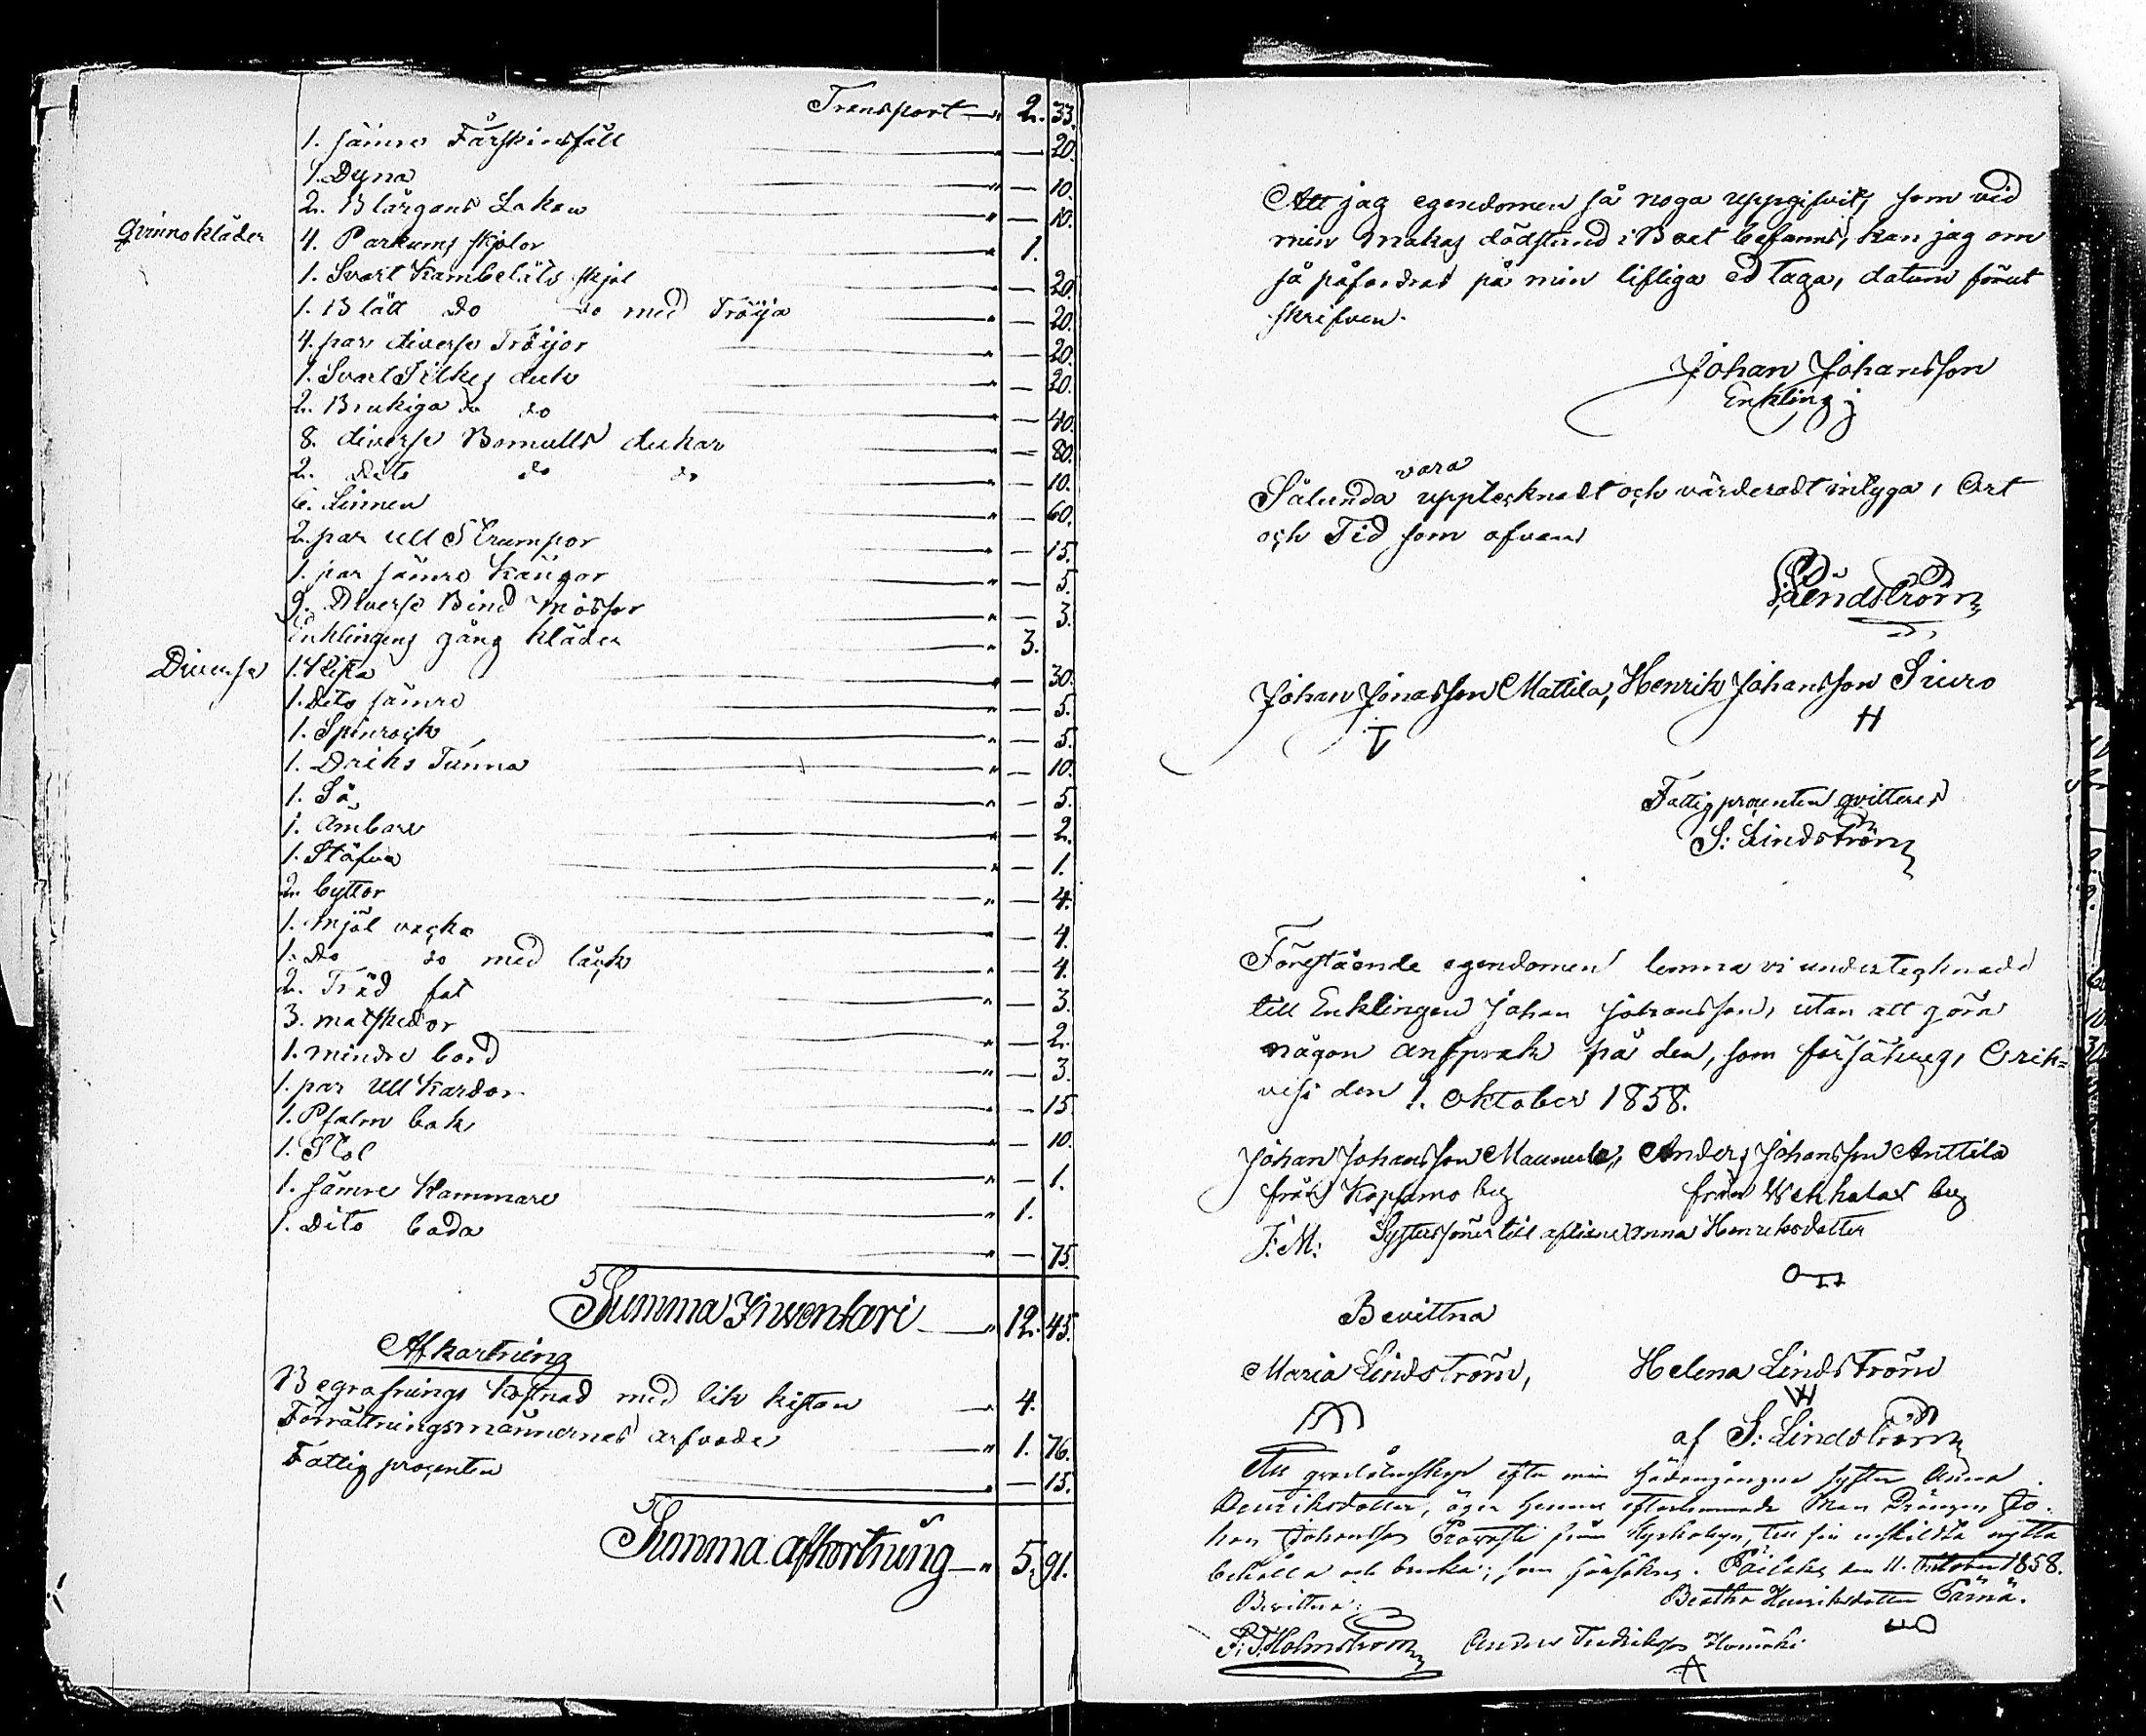 Transport 2. 33.
1. sämre Fårskinsfäll — 20.
1. Dyna — 10.
2. Blårgans Lakan — 10.
Qvinnokläder 4. Parkums kjolor 1.
1. Svart Kambelåts kjol — 20.
1. Blått do do med Tröija — 20.
4. par diverse Tröijor — 20.
1. Svart Silkes duk — 20.
2. Brukiga do do — 40.
8. diverse Bomulls dukar — 80.
2. Dito do do — 10.
6. Linnen — 60.
2. par Ull Strumpor — 15.
1. par sämre Kängor — 5.
9. Diverse Bind Mössor — 3.
Enklingens gång kläder 3.
Diverse 1. Kista — 30.
1. Dito sämre — 5.
1. Spinrock — 5.
1. Driks Tunna — 10.
1. Så — 5.
1. Ambare — 2.
1. Stäfva — 1.
2. byttor — 4.
1. Mjöl vacka — 4.
1. Do do med låck — 4.
2. Träd fat — 3.
3. matskedor — 2.
1. mindre bord — 3.
1. par Ull Kardor — 15.
1. Psalm bok — 10.
1. Stol — 1.
1. sämre Kammare 1.
1. Dito boda — 75.
Summa Inventari 12. 45.
Afkortning
Begrafnings kostnad med lik kistan 4.
Förrättningsmännernas arfvode 1. 76.
Fattig procenten — 15.
Summa afkortning 5. 91.
Att jag egendomen så noga uppgifvit, som vid
min Makas dödstund i Boet befanns, kan jag om
så påfordras på min lifliga ed taga, datum förut
skrifven.
Johan Johansson
Enkling
Sålunda vara upptecknadt och värderadt intyga, Ort
och Tid som ofvan
S. Lindström
Johan Jonasson Mattila, Henrik Johansson Siuro
H
Fattigprocenten qvitteras
S: Lindström
Förestående egendomen lemna vi undertecknade
till Enklingen Johan Johansson, utan att göra
någon anspråk på den, som försäkras, Orih-
vesi den 1. Oktober 1858.
Johan Johansson Maunula, Anders Johansson Anttila
från Kopsamo by från Wehkalax by
J: M: Systersöner till aflidne Anna Henriksdotter
Bevittna
Maria Lindström, Helena Lindström
af S: Lindström
All qvarlåtenskap efter min hädangångne syster Anna
Henriksdotter, äger hennes efterlemnade Man Drängen Jo-
han Johansson från till sin enskildta nytta
behålla och bruka; som försäkras. den 11. Oktober 1858.
Bevittna: Beatha Henriksdotter Pärnä.
F: J. Holmström Anders Fredriksson